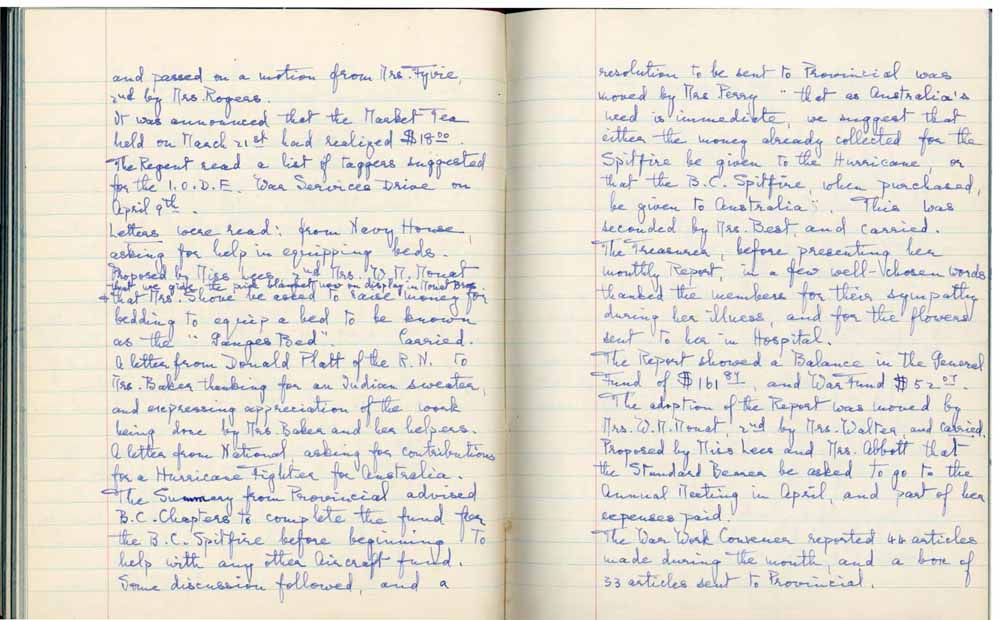 and passed on a motion from Mrs. Fyvie,
2nd by Mrs. Rogers.
It was announced that the Market Tea
held on March 21st had realized $18.00.
The Regent read a list of taggers suggested
for the I.O.D.E. War Services Drive on
April 9th.
Letters were read: from Navy House,
asking for help in equipping beds.
Proposed by Miss Lees, 2nd Mrs. W.M. Mouat
that we give the pink blanket now on display in Mouat Bros.
+ that Mrs. Shove be asked to raise money for
bedding to equip a bed to be known
as the "Ganges Bed". Carried.
A letter from Donald Platt of the R.N. to
Mrs. Baker thanking for an Indian sweater,
and expressing appreciation of the work
being done by Mrs. Baker and her helpers.
A letter from National asking for contributions
for a Hurricane Fighter for Australia.
The Summary from Provincial advised
B.C. Chapters to complete the fund for
the B.C. Spitfire before beginning to
help with any other Aircraft fund.
Some discussion followed, and a
resolution to be sent to Provincial was
moved by Mrs Perry "that as Australia's
need is immediate, we suggest that
either the money already collected for the
Spitfire be given to the Hurricane, or
that the B.C. Spitfire, when purchased,
be given to Australia". This was
seconded by Mrs. Best, and carried.
The Treasurer, before presenting her
monthly Report, in a few well-chosen words
thanked the members for their sympathy
during her illness, and for the flowers
sent to her in Hospital.
The Report showed a Balance in the General
Fund of $161.81, and War Fund $52.07.
The adoption of the Report was moved by
Mrs. W.M. Mouat, 2nd by Mrs. Walter, and carried.
Proposed by Miss Lees and Mrs. Abbott that
the Standard Bearer be asked to go to the
Annual Meeting in April, and part of her
expenses paid.
The War Work Convener reported 44 articles
made during the month, and a box of
33 articles sent to Provincial.